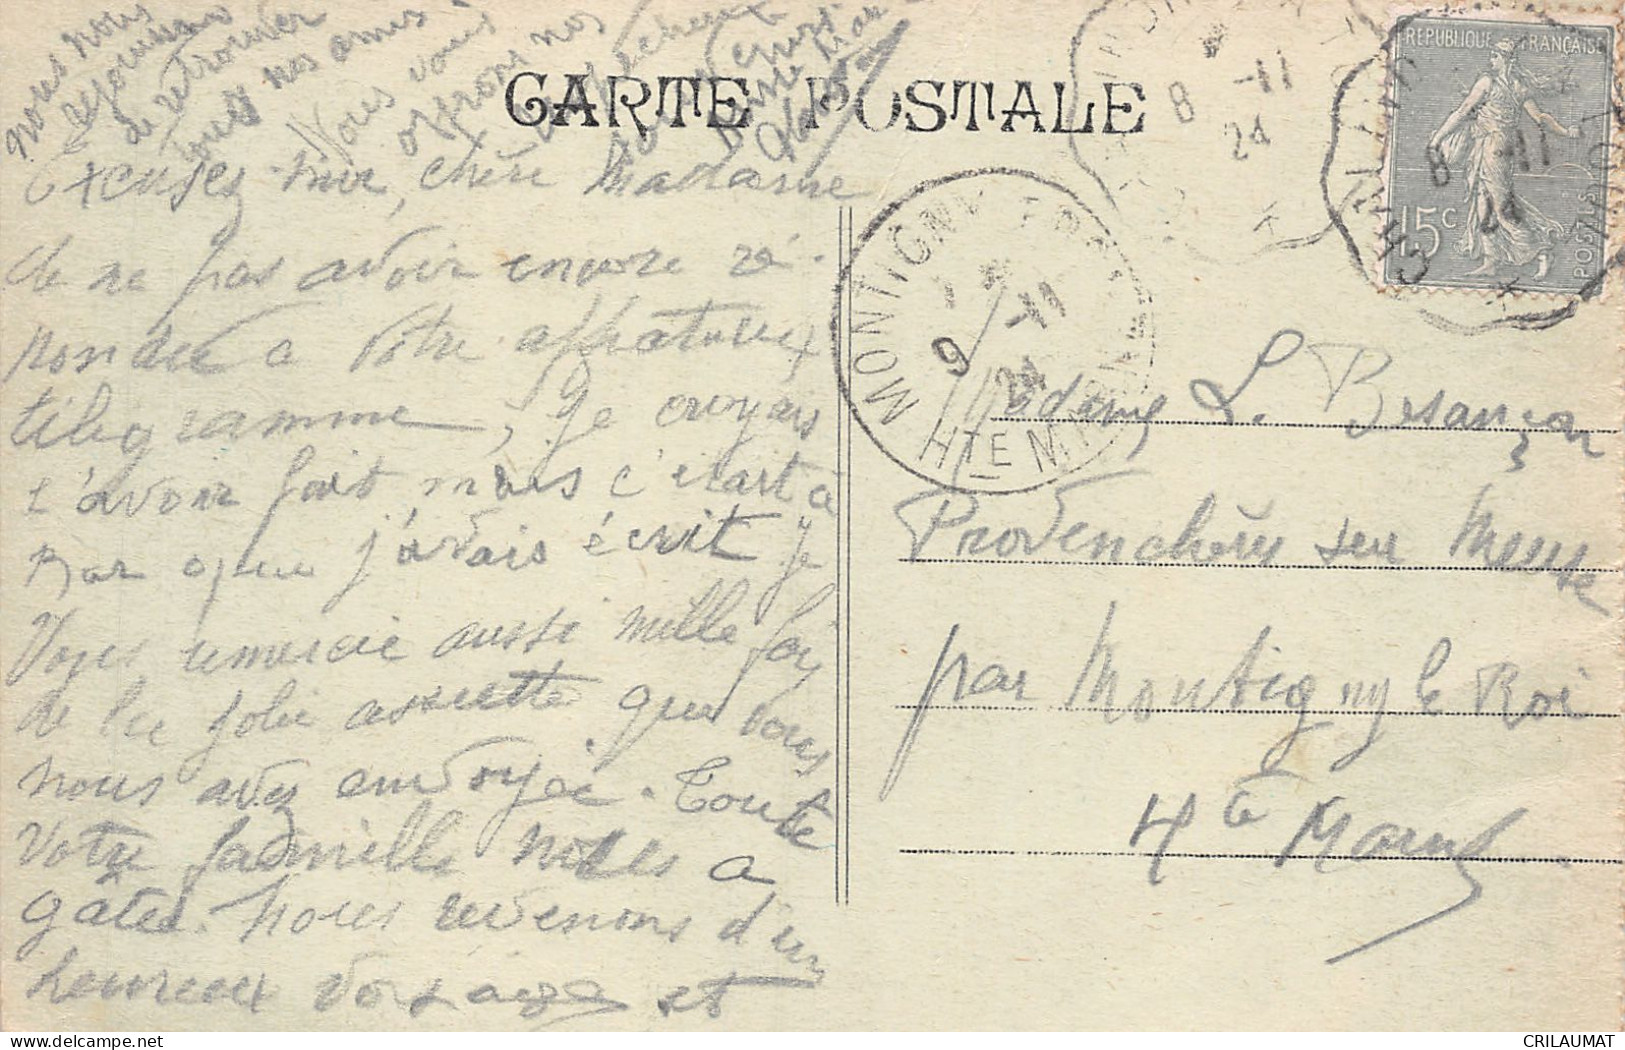 CARTE POSTALE
Excuses-moi, chère Madame
de ne pas avoir encore ré-
pondu a votre affectueux
télégramme, je croyais
l'avoir fait mais c'etait a
que j'avais écrit je
Vous remercie aussi mille fois
de la jolie assiette que vous
nous avez envoyée. Toute
votre famille nous a
gâtée. Nous revenons d'un
heureux voyage et
nous nous
rejouissons
de retrouver
tous nos amis
Nous vous
offrons nos
RÉPUBLIQUE FRANÇAISE
15c
POSTES
8 -11
24
8 -11
24
MONTIGNY
9 -11
24
HTE MARNE
Madame L. Besançon
Provenchères sur Meuse
par Montigny le Roi
Hte Marne
CRILAUMAT